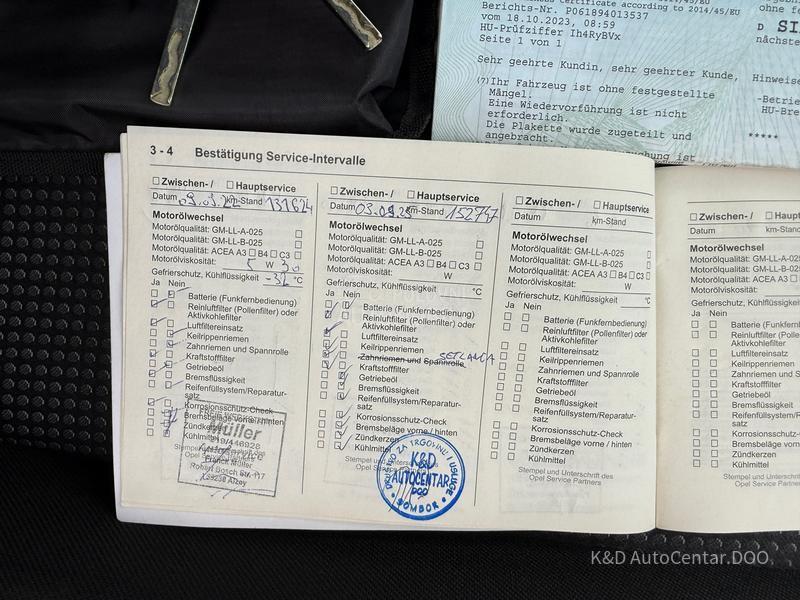 Certificate according to 2014/45/EU
Berichts-Nr. P061894013537
vom 18.10.2023, 08:59
HU-Prüfziffer Ih4RyBVx
Seite 1 von 1
Sehr geehrte Kundin, sehr geehrter Kunde,
(7) Ihr Fahrzeug ist ohne festgestellte
Mängel.
Eine Wiedervorführung ist nicht
erforderlich.
Die Plakette wurde zugeteilt und
angebracht.
ohne
D
nächste
Hinweise
-Betrie
HU-Bre
*****
3 - 4 Bestätigung Service-Intervalle
Zwischen- / Hauptservice
Datum km-Stand 131624
Motorölwechsel
Motorölqualität: GM-LL-A-025
Motorölqualität: GM-LL-B-025
Motorölqualität: ACEA A3 B4 C3
Motorölviskosität: 5 W 30
Gefrierschutz, Kühlflüssigkeit °C
Ja Nein
Batterie (Funkfernbedienung)
Reinluftfilter (Pollenfilter) oder
Aktivkohlefilter
Luftfiltereinsatz
Keilrippenriemen
Zahnriemen und Spannrolle
Kraftstofffilter
Getriebeöl
Bremsflüssigkeit
Reifenfüllsystem/Reparatur-
satz
Korrosionsschutz-Check
Bremsbeläge vorne/hinten
Zündkerzen
Kühlmittel
Müller
Franck Müller
Robert Bosch Str.
55232 Alzey
Zwischen- / Hauptservice
Datum 03.09.25 km-Stand 152747
Motorölwechsel
Motorölqualität: GM-LL-A-025
Motorölqualität: GM-LL-B-025
Motorölqualität: ACEA A3 B4 C3
Motorölviskosität: W
Gefrierschutz, Kühlflüssigkeit °C
Ja Nein
Batterie (Funkfernbedienung)
Reinluftfilter (Pollenfilter) oder
Aktivkohlefilter
Luftfiltereinsatz
Keilrippenriemen
Zahnriemen und Spannrolle
Kraftstofffilter
Getriebeöl
Bremsflüssigkeit
Reifenfüllsystem/Reparatur-
satz
Korrosionsschutz-Check
Bremsbeläge vorne / hinten
Zündkerzen
Kühlmittel
K&D
AUTOCENTAR
DOO
SOMBOR
Zwischen- / Hauptservice
Datum km-Stand
Motorölwechsel
Motorölqualität: GM-LL-A-025
Motorölqualität: GM-LL-B-025
Motorölqualität: ACEA A3 B4 C3
Motorölviskosität: W
Gefrierschutz, Kühlflüssigkeit °C
Ja Nein
Batterie (Funkfernbedienung)
Reinluftfilter (Pollenfilter) oder
Aktivkohlefilter
Luftfiltereinsatz
Keilrippenriemen
Zahnriemen und Spannrolle
Kraftstofffilter
Getriebeöl
Bremsflüssigkeit
Reifenfüllsystem/Reparatur-
satz
Korrosionsschutz-Check
Bremsbeläge vorne / hinten
Zündkerzen
Kühlmittel
Stempel und Unterschrift des
Opel Service Partners
Zwischen- / Haupt
Datum km-Stand
Motorölwechsel
Motorölqualität: GM-LL-A-025
Motorölqualität: GM-LL-B-025
Motorölqualität: ACEA A3
Motorölviskosität:
Gefrierschutz, Kühlflüssigkeit
Ja Nein
Batterie (Funkfernb
Reinluftfilter (Pollenf
Aktivkohlefilter
Luftfiltereinsatz
Keilrippenriemen
Zahnriemen und Spa
Kraftstofffilter
Getriebeöl
Bremsflüssigkeit
Reifenfüllsystem/Re
satz
Korrosionsschutz-C
Bremsbeläge vorne
Zündkerzen
Kühlmittel
Stempel und Unterschr
Opel Service Part
K&D AutoCentar.DOO